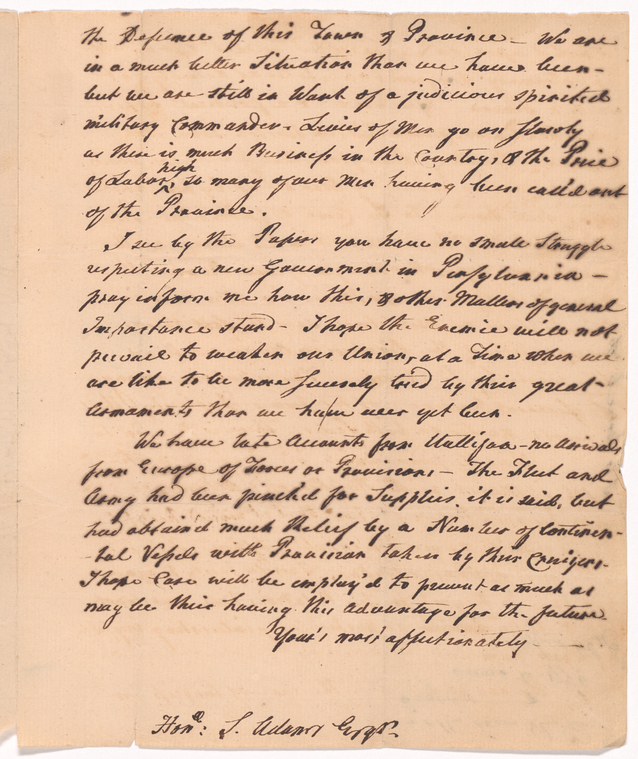 the Defence of this Town & Province – We are
in a much better Situation than we have been –
but we are still in Want of a judicious spirited
military Commander. Levies of Men go on slowly
as there is much Business in the Country, & the Price
of Labor high, so many of our Men having been call'd out
of the Province.
I see by the Papers you have no small Struggle
respecting a new Government in Pensylvania –
pray inform me how this, & other Matters of general
Importance stand – I hope the Enemie will not
prevail to weaken our Union, at a Time when we
are like to be more severely tried by their great
Armaments than we have ever yet been.
We have late Accounts from Hallifax – no arrivals
from Europe of Forces or Provisions – The Fleet and
Army had been pinched for Supplies, it is said, but
had obtain'd much Relief by a Number of Continen-
-tal Vessels with Provision taken by their Cruizers.
I hope Care will be employ'd to prevent as much as
may be their having this Advantage for the future.
Your's most affectionately
Honle: S. Adams Esqr.